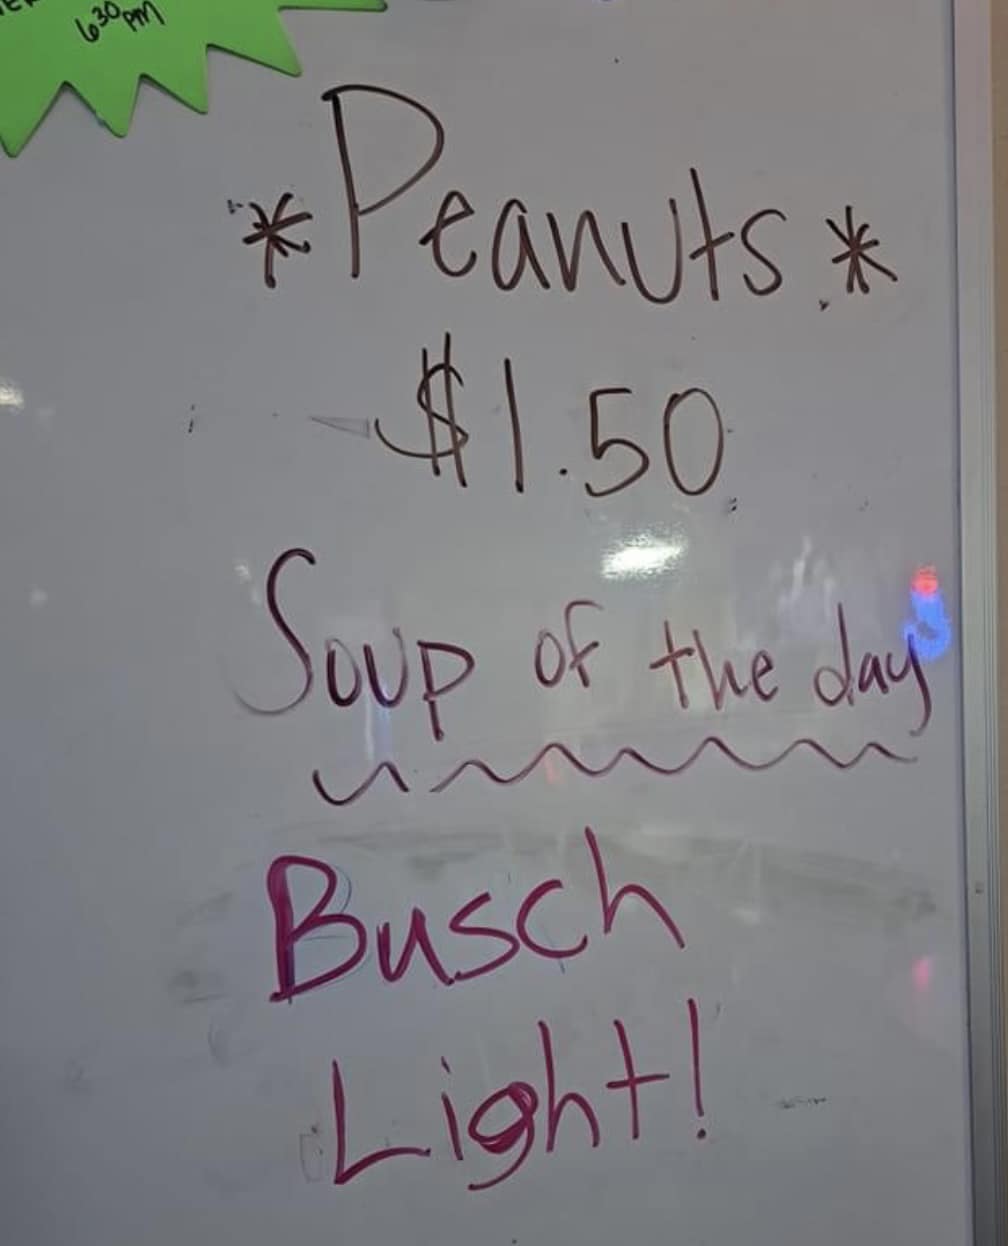 630 pm
*Peanuts*
$1.50
Soup of the day
Busch
Light!